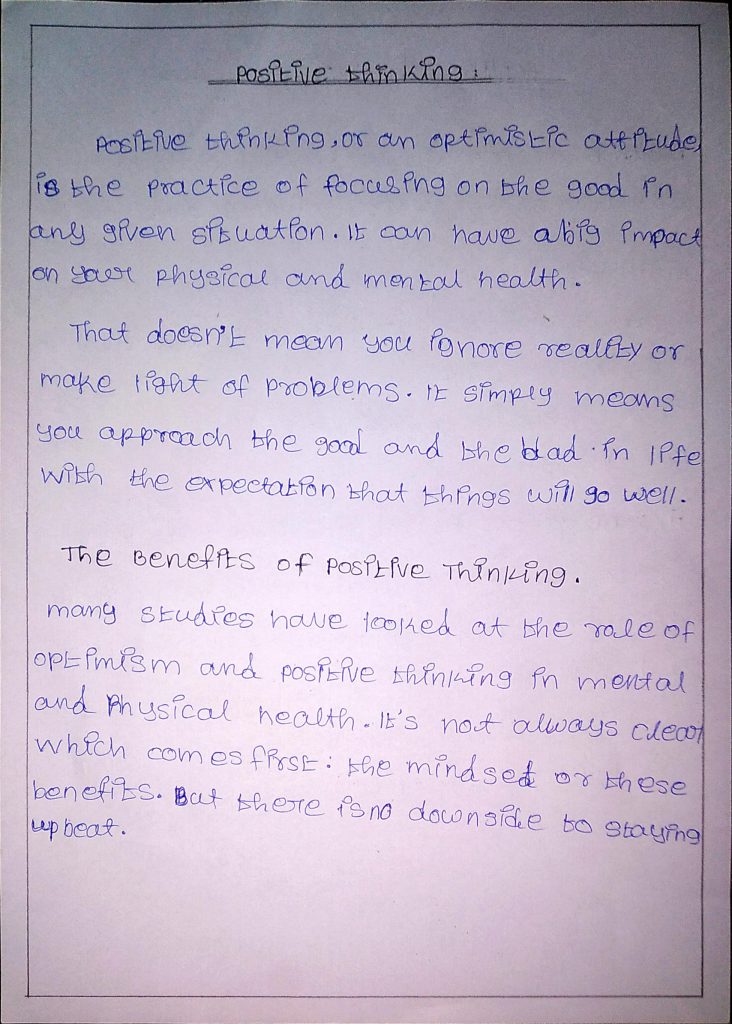 Positive thinking :
Positive thinking, or an optimistic attitude,
is the practice of focusing on the good in
any given situation. It can have a big impact
on your physical and mental health.
That doesn't mean you ignore reality or
make light of problems. It simply means
you approach the good and the bad in life
with the expectation that things will go well.
The Benefits of Positive Thinking.
many studies have looked at the role of
optimism and positive thinking in mental
and Physical health. It's not always clear
which comes first: the mindset or these
benefits. But there is no downside to staying
upbeat.